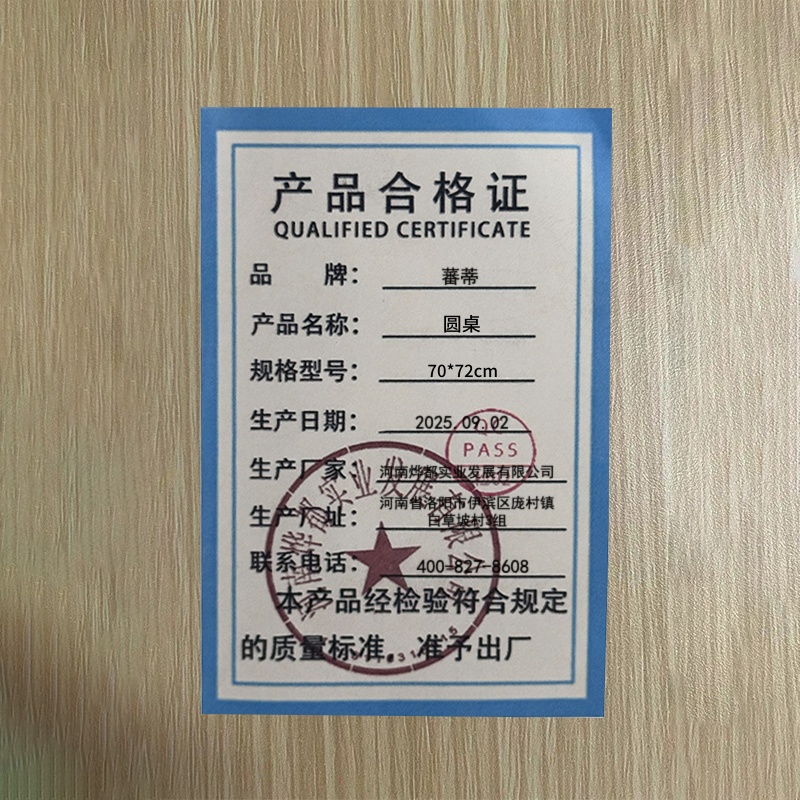 产品合格证
QUALIFIED CERTIFICATE
品 牌: 蕃蒂
产品名称: 圆桌
规格型号: 70*72cm
生产日期: 2025.09.02
PASS
生产厂家: 河南烨都实业发展有限公司
生产厂址: 河南省洛阳市伊滨区庞村镇
白草坡村3组
联系电话: 400-827-8608
河南烨都实业发展有限公司
本产品经检验符合规定
的质量标准。准予出厂